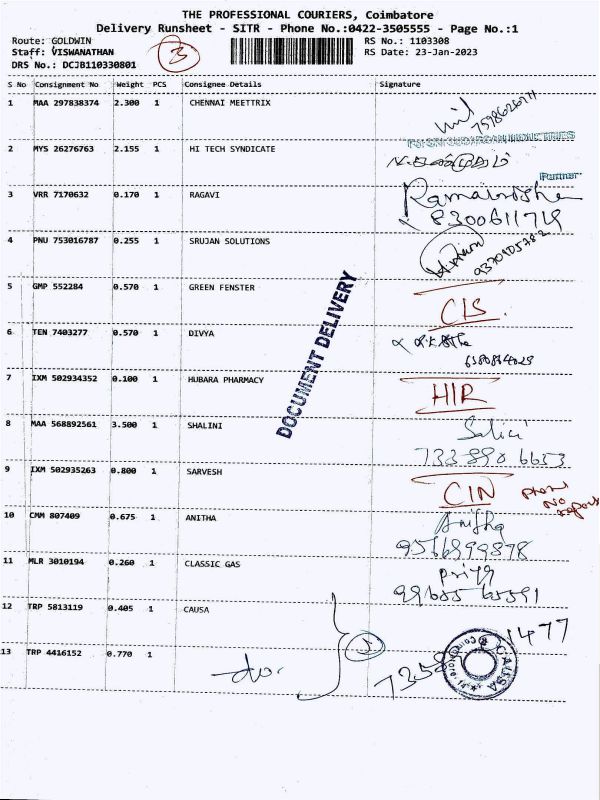 THE PROFESSIONAL COURIERS, Coimbatore
Delivery Runsheet - SITR - Phone No.:0422-3505555 - Page No.:1
Route: GOLDWIN
RS No.: 1103308
Staff: VISWANATHAN
3
RS Date: 23-Jan-2023
DRS No.: DCJB110330801
S No Consignment No Weight PCS Consignee Details Signature
1 MAA 297838374 2.300 1 CHENNAI MEETTRIX
2 MYS 26276763 2.155 1 HI TECH SYNDICATE
Partner
3 VRR 7170632 0.170 1 RAGAVI
8300611719
4 PNU 753016787 0.255 1 SRUJAN SOLUTIONS
5 GMP 552284 0.570 1 GREEN FENSTER
CIS.
6 TEN 7403277 0.570 1 DIVYA
7 IXM 502934352 0.100 1 HUBARA PHARMACY
HIR
DOCUMENT DELIVERY
8 MAA 568892561 3.500 1 SHALINI
733 890 6653
9 IXM 502935263 0.800 1 SARVESH
CIN
10 CMM 807409 0.675 1 ANITHA
Anitha
9566899878
11 MLR 3010194 0.260 1 CLASSIC GAS
Priya
12 TRP 5813119 0.405 1 CAUSA
13 TRP 4416152 0.770 1
-do-
1477
7358
CAUSA